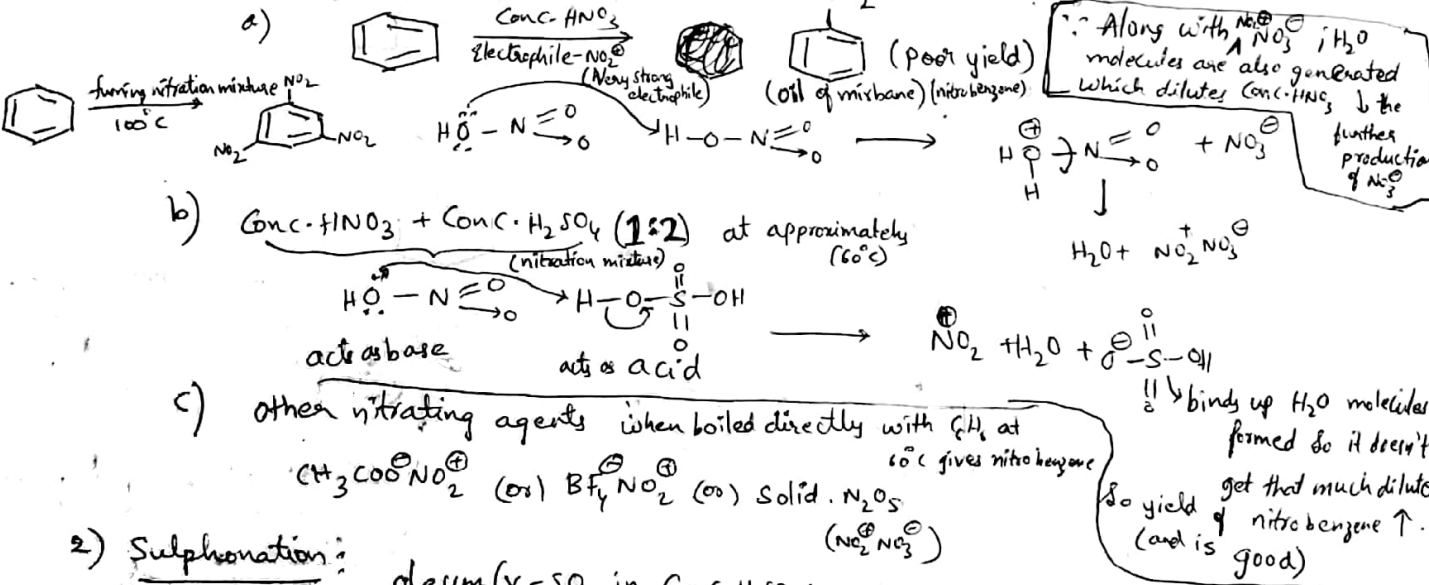 a)
Conc. HNO3
Electrophile-NO2⊕
(Very strong electrophile)
(poor yield)
(oil of mirbane) (nitrobenzene)
∵ Along with NO2⊕ NO3⊖ ; H2O
molecules are also generated
which dilutes Conc. HNO3 ↓ the
further
production
of NO3⊖
fuming nitration mixture
100°C
NO2
NO2
NO2
HO – N = O → O
H – O – N = O → O
H O⊕ N = O → O
H
+ NO3⊖
H2O + NO2+ NO3⊖
b) Conc. HNO3 + Conc. H2SO4 (1:2) at approximately
(nitration mixture)
(60°C)
HO – N = O → O
H – O – S – OH
O
O
acts as base
acts as acid
⊕NO2 + H2O + ⊖O – S – OH
O
O
binds up H2O molecules
formed so it doesn't
get that much dilute
So yield of nitrobenzene ↑.
(and is good)
c) other nitrating agents when boiled directly with C6H6 at
60°C gives nitrobenzene
CH3COO⊖NO2⊕ (or) BF4⊖NO2⊕ (or) Solid. N2O5
(NO2⊕ NO3⊖)
2) Sulphonation: